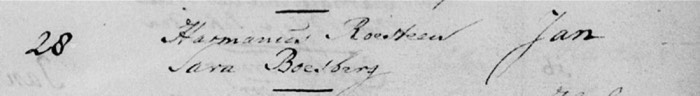 28 Harmanus Roesteen Jan
Sara Boesberg